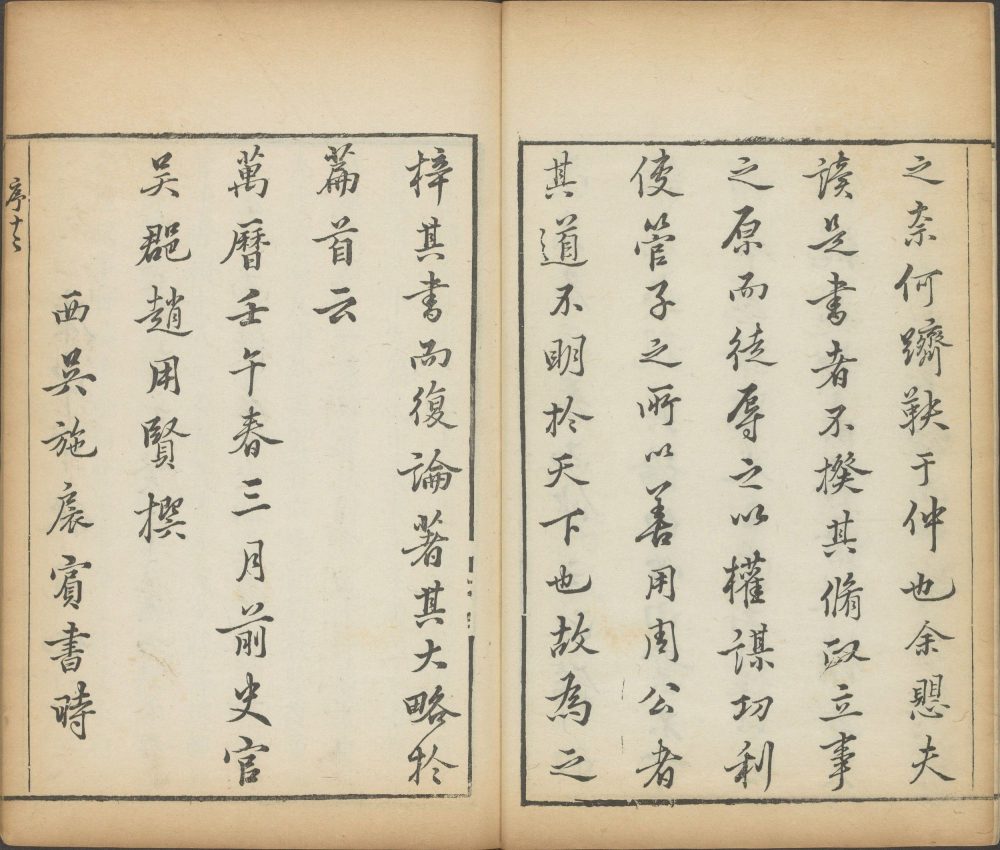 之奈何躋鞅于仲也余愳夫
讀是書者不揆其脩政立事
之原而徒辱之以權謀功利
使管子之所以善用周公者
其道不明於天下也故為之
梓其書而復論著其大略於
篇首云
萬曆壬午春三月前史官
吳郡趙用賢撰
西吳施扆賓書時
序十二